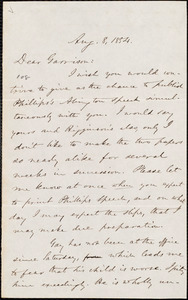 Aug. 8, 1854.
Dear Garrison:
I wish you would con-
trive to give us the chance to publish
Phillips's Abington speech simul-
taneously with you. I would say
yours and Higginson's also only I
don't like to make the two papers
so nearly alike for several
weeks in succession. Please let
me know at once when you expect
to print Phillips' speech, and on what
day I may expect the slips, that I
may make due preparation.
Gay has not been at the office
since Saturday, which leads me
to fear that his child is worse. I pity
him exceedingly. He is wholly un-